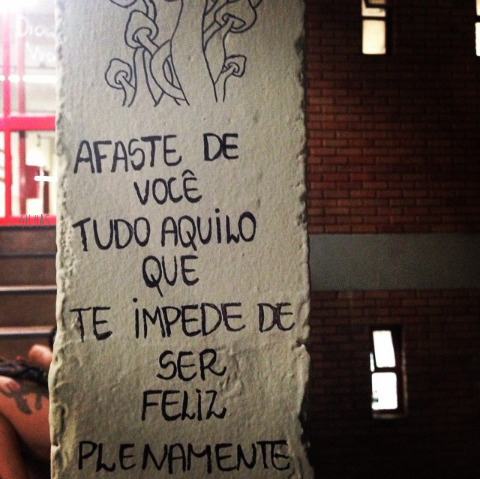 AFASTE DE
VOCÊ
TUDO AQUILO
QUE
TE IMPEDE DE
SER
FELIZ
PLENAMENTE